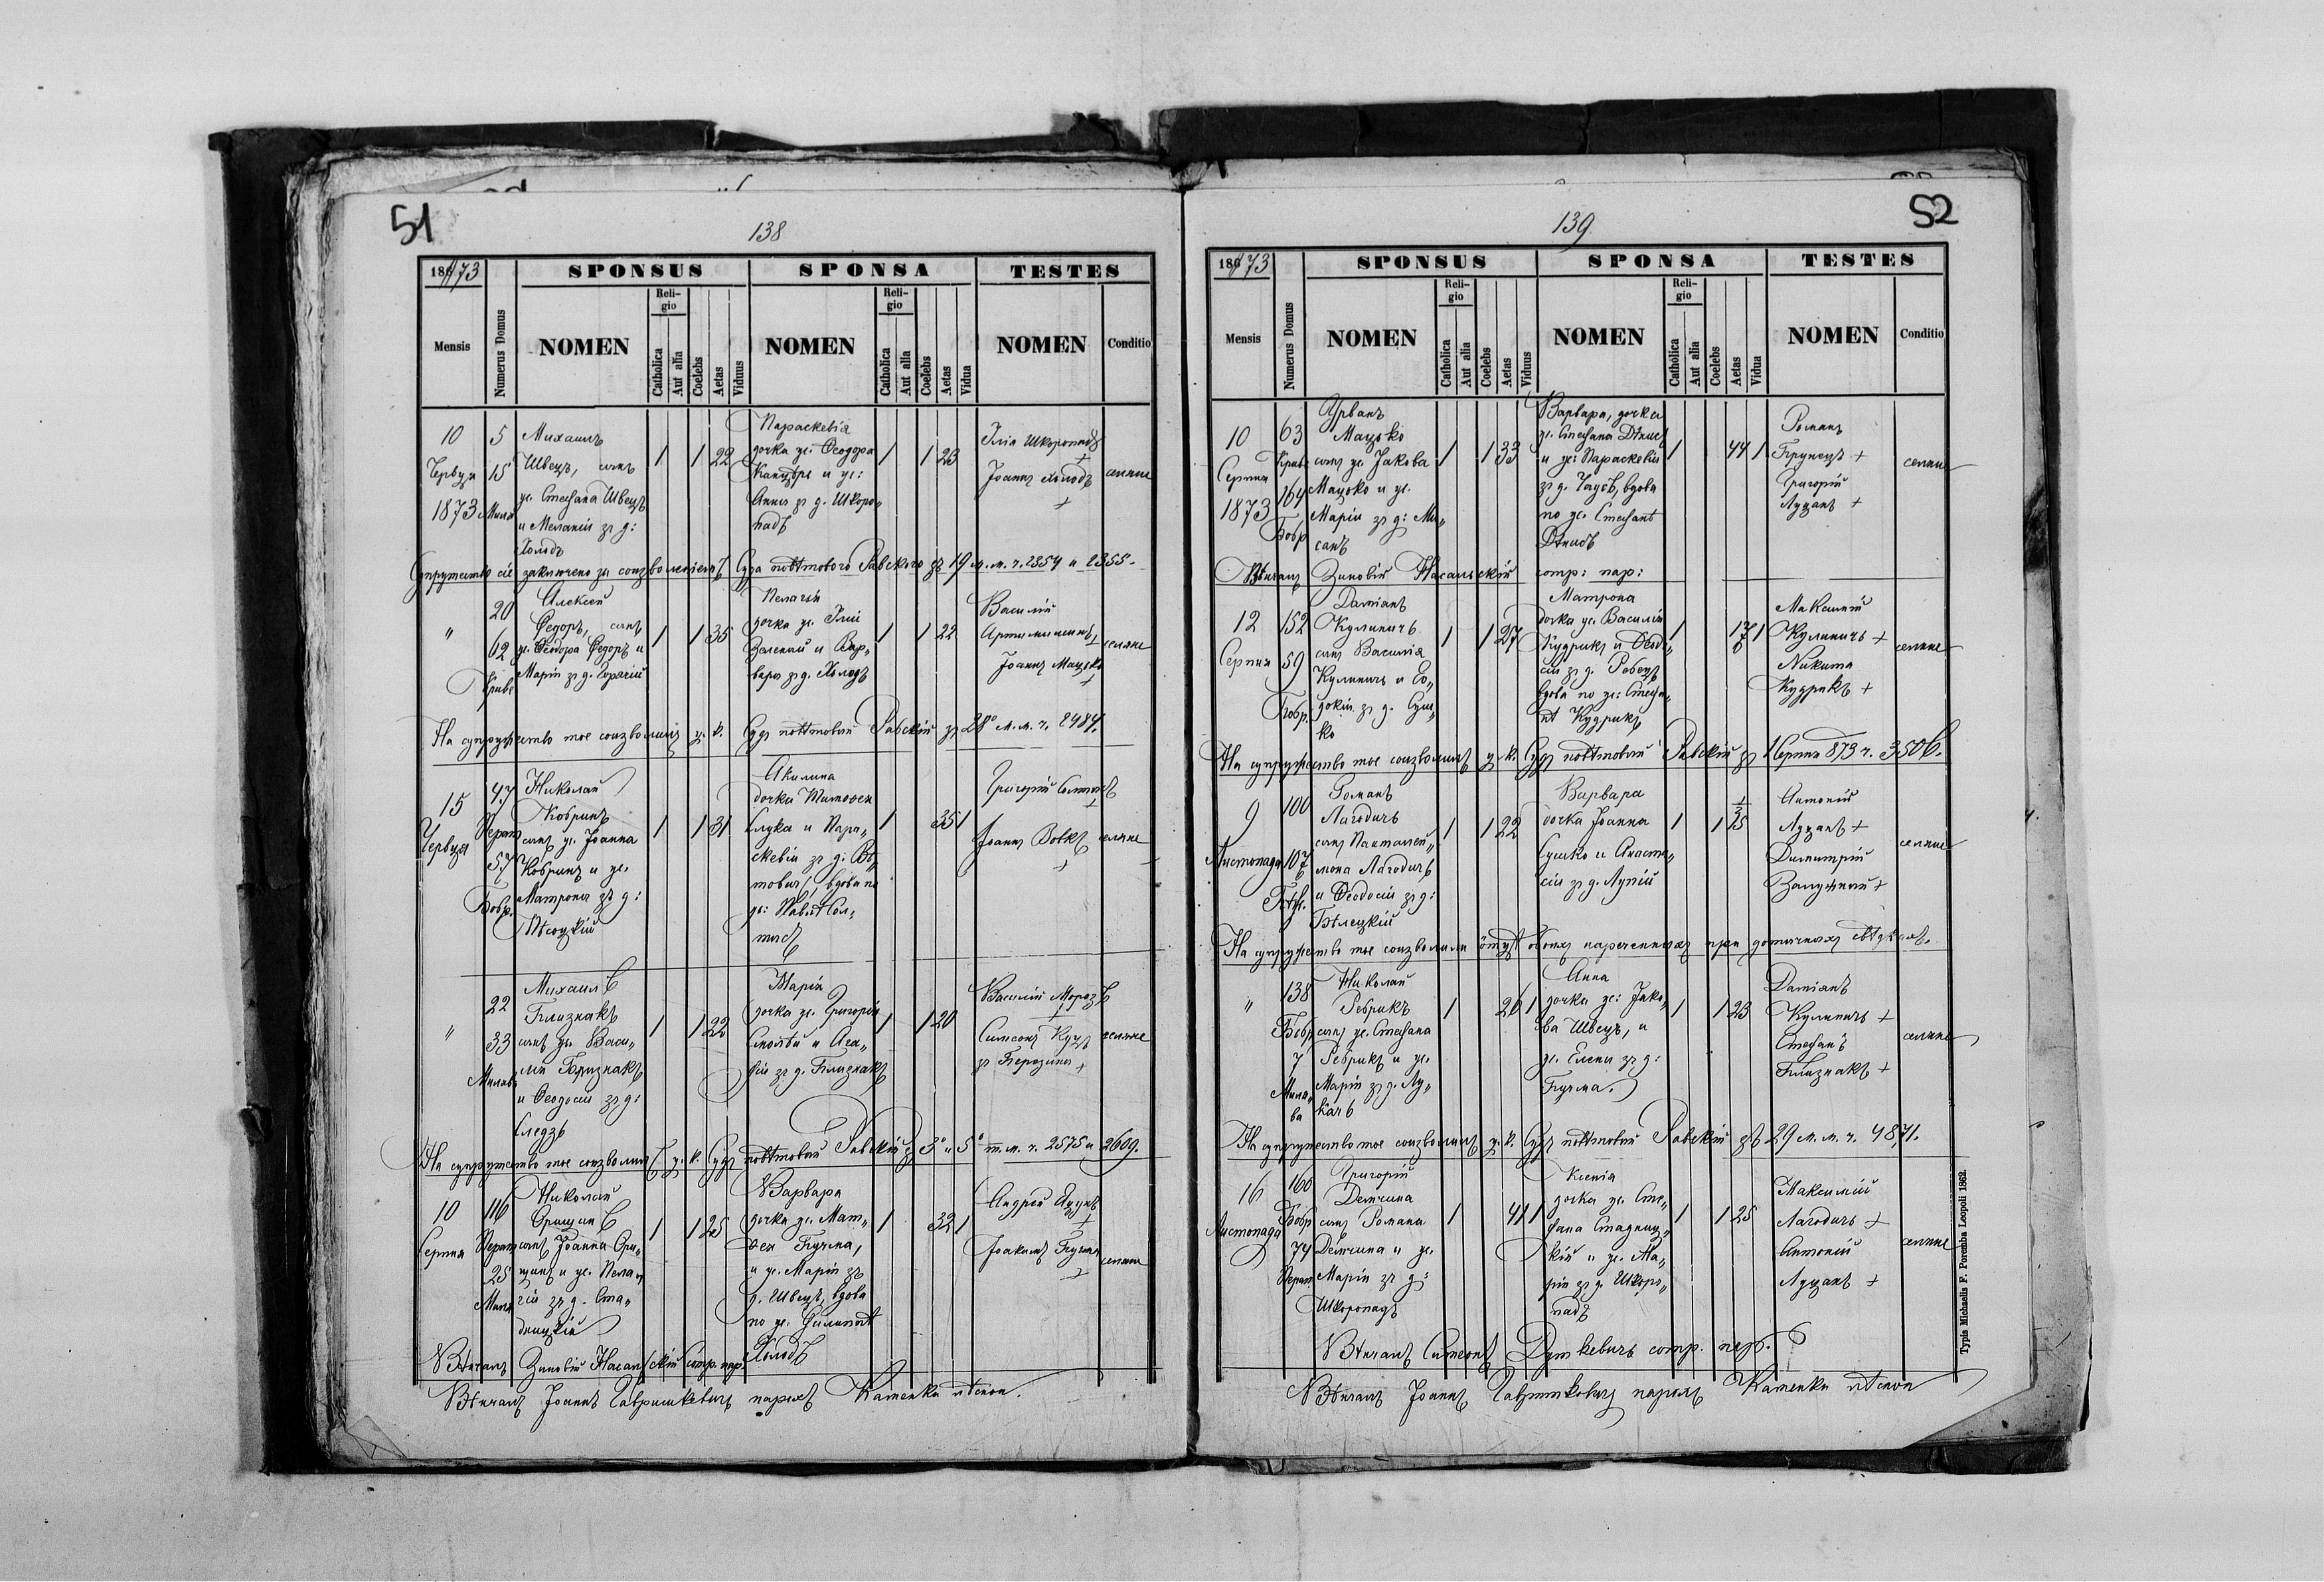 51
138
1873
SPONSUS
SPONSA
TESTES
Mensis
Numerus Domus
NOMEN
Religio
Catholica
Aut alia
Coelebs
Aetas
Viduus
NOMEN
Religio
Catholica
Aut alia
Coelebs
Aetas
Vidua
NOMEN
Conditio
10
Червця
1873
5
15
Михаилъ
Швецъ, сынъ
ус. Стефана Швецъ
и Меланіи зъ д:
Холодъ
1 1 22
Параскевія
дочка ус. Ѳеодора
и ус:
Анны зъ д. Шкоро„
падъ
1 1 23
Ілія Шкоропадъ
+
Іоаннъ Холодъ
+
селяне
Супружество сіе заключено за соизволеніемъ Суда повѣтового Равского зъ 19 м. м. ч. 2354 и 2355.
"
20
62
Криве
Алексей
Ѳедоръ, сынъ
ус. Ѳеодора Ѳедоръ и
Маріи зъ д. Горячій
1 1 35
Пелагія
дочка ус. Іліи
Зелений и Вар„
вары зъ д. Холодъ
1 1 22
Василій
+
Іоаннъ Мацько
+
селяне
На супружество тое соизволилъ ц. к. Судъ повѣтовый Равскій зъ 28° м. м. ч. 2484.
15
Червця
47
57
Бобр.
Николай
Кобринъ
сынъ ус. Іоанна
Кобринъ и ус.
Матроны зъ д:
Пѣсоцкій
1 1 31
Акилина
дочка Тимоѳея
и Пара„
скевіи зъ д:
вдова по
ус:
1 35 1
Григорій
+
Іоаннъ Вовкъ
+
селяне
"
22
33
Михаилъ
Близнакъ
сынъ ус. Васи„
лія Близнакъ
и Ѳеодосіи зъ д:
Следзь
1 1 22
Марія
дочка ус. Григорія
и Ага„
фіи зъ д. Близнакъ
1 1 20
Василій Морозъ
+
Симеонъ Куцъ
зъ Березины +
селяне
На супружество тое соизволилъ ц. к. Судъ повѣтовый Равскій зъ 3° и 5° т. м. ч. 2575 и 2609.
10
Серпня
116
25
Николай
Орищинъ
сынъ Іоанна Ори„
щинъ и ус. Пела„
гіи зъ д. Ста„
дницкій
1 1 25
Варвара
дочка ус. Мат„
ѳея Бучма,
и ус. Маріи зъ
д. Швецъ, вдова
по ус. Филиппѣ
Холодъ
1 32 1
Андрей Яцунъ
+
Іоакимъ Бучма
+
селяне
Вѣнчалъ Зиновій Насальскій сотр. пар.
Вѣнчалъ Іоаннъ Гавришкевичъ парохъ Каменки лѣсной.
52
139
1873
SPONSUS
SPONSA
TESTES
Mensis
Numerus Domus
NOMEN
Religio
Catholica
Aut alia
Coelebs
Aetas
Viduus
NOMEN
Religio
Catholica
Aut alia
Coelebs
Aetas
Vidua
NOMEN
Conditio
10
Серпня
1873
63
Криве
164
Бобр
Урбанъ
Мацько
сынъ ус. Іакова
Мацько и ус.
Маріи зъ д: Ми„
санъ
1 1 33
Варвара, дочка
ус. Стефана Дѣкисъ
и ус: Параскевіи
зъ д. вдова
по ус. Стефанѣ
1 44 1
Романъ
+
Григорій
Луцанъ +
селяне
Вѣнчалъ Зиновій Насальскій сотр: пар:
12
Серпня
152
59
Бобр.
Даміанъ
Куликичъ
сынъ Василія
Куликичъ и Ев„
докіи зъ д. Суш„
ко
1 1 27
Матрона
дочка ус. Василія
Кудрикъ и Ѳеодо„
сіи зъ д. Ребецъ
вдова по ус: Стефа„
нѣ Кудрикъ
1 1
Максимій
Куликичъ +
Никита
Кудрикъ +
селяне
На супружество тое соизволилъ ц. к. Судъ повѣтовый Равскій зъ 1 Серпня 873 ч. 3506.
9
Листопада
100
107
Бобр.
Романъ
Лагодичъ
сынъ Пантелей„
мона Лагодичъ
и Ѳеодосіи зъ д:
Бѣлецкій
1 1 22
Варвара
дочка Іоанна
Сушко и Анаста„
сіи зъ д. Лупій
1 1
Антоній
Луцанъ +
Димитрій
Залужный +
селяне
На супружество тое соизволили отцѣ обоихъ нареченныхъ при дотычныхъ свѣдкахъ.
"
138
Бобр
7
Мила„
ва
Николай
Ребрикъ
сынъ ус. Стефана
Ребрикъ и ус.
Маріи зъ д. Лу„
качъ
1 26 1
Анна
дочка ус: Іако„
ва Швецъ, и
ус. Елены зъ д:
Бучма.
1 1 23
Даміанъ
Куликичъ +
Стефанъ
Близнакъ +
селяне
На супружество тое соизволилъ ц. к. Судъ повѣтовый Равскій зъ 29 м. м. ч. 4871.
16
Листопада
160
Бобр
74
Григорій
Демчина
сынъ Романа
Демчина и ус.
Маріи зъ д:
Шкоропадъ
1 41 1
Ксенія
дочка ус. Сте„
фана Стадниц„
кій и ус. Ма„
ріи зъ д. Шкоро„
падъ
1 1 25
Максимій
Лагодичъ +
Антоній
Луцанъ +
селяне
Вѣнчалъ Симеонъ Дуткевичъ сотр. пер.
Вѣнчалъ Іоаннъ Гавришкевичъ парохъ Каменки лѣсной
Typis Michaelis F. Poremba Leopoli 1862.